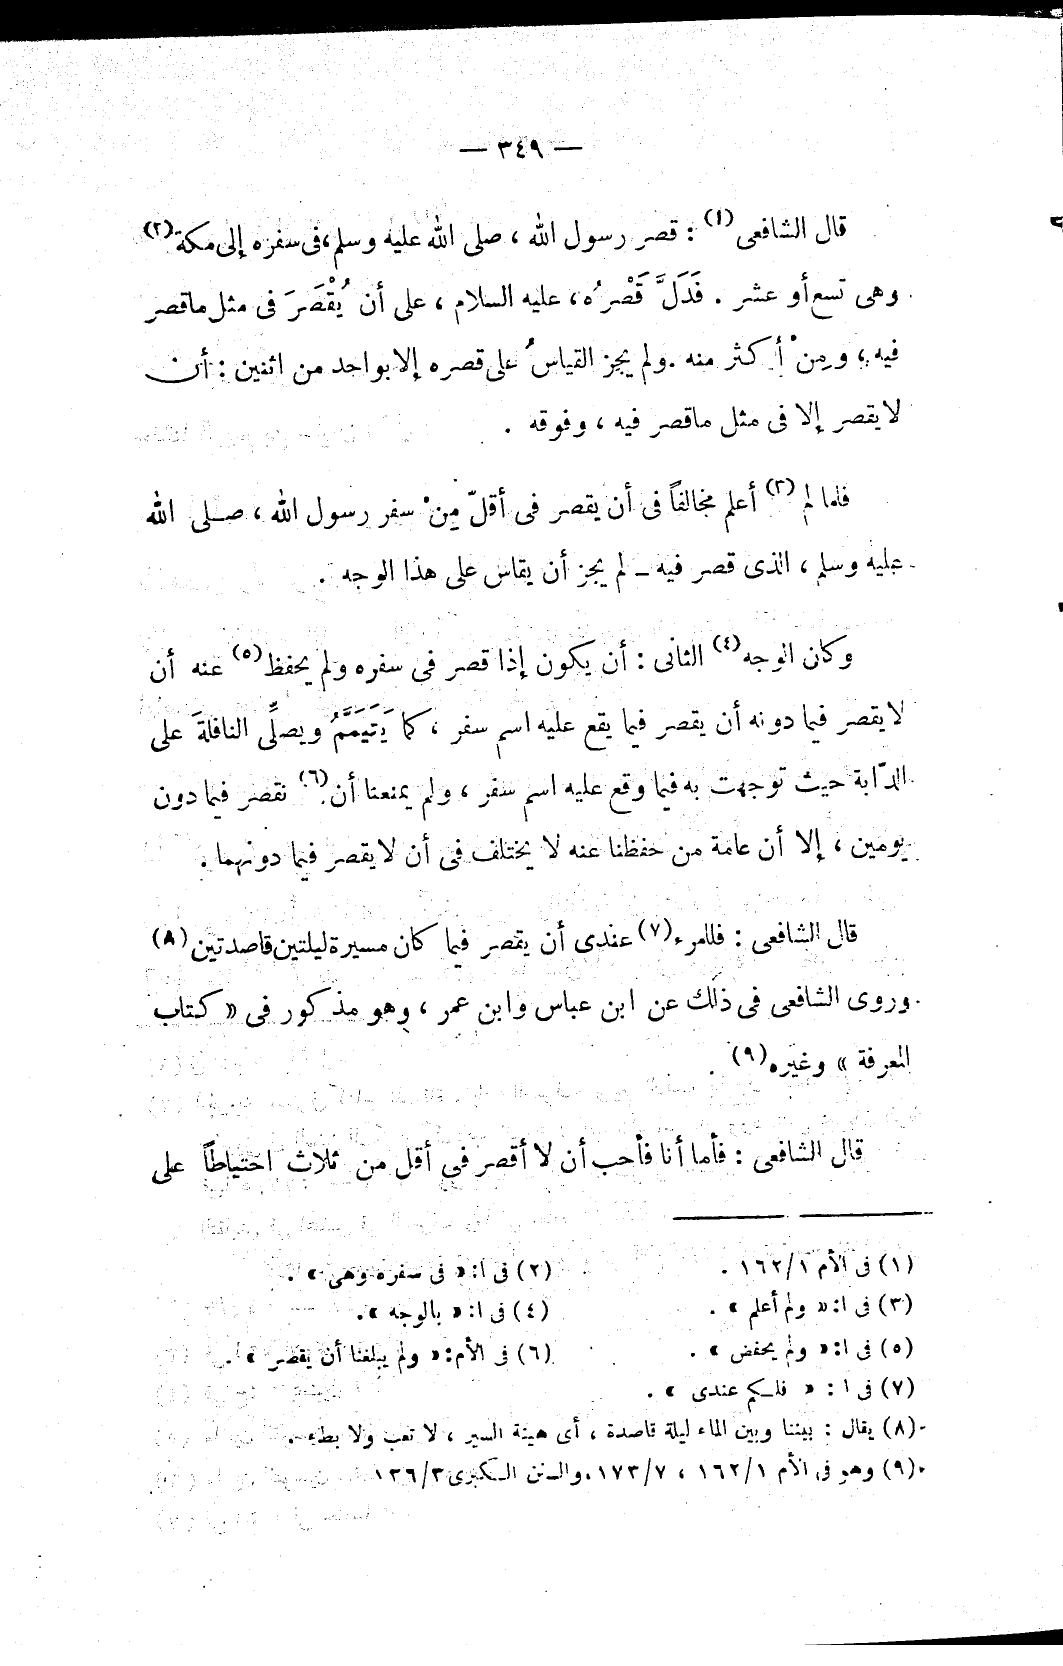 — ٣٤٩ —
قال الشافعى(١) : قصر رسول الله ، صلى الله عليه وسلم ، فى سفره إلى مكة(٢)
وهى تسع أو عشر . فَدَلَّ قَصْرُه ، عليه السلام ، على أن يُقْصَرَ فى مثل ماقصر
فيه ، ومِنْ أكثر منه . ولم يجز القياسُ على قصره إلا بواحد من اثنين : أن
لا يقصر إلا فى مثل ماقصر فيه ، وفوقه .
فلما لم(٣) أعلم مخالفاً فى أن يقصر فى أقلّ مِنْ سفر رسول الله ، صلى الله
عليه وسلم ، الذى قصر فيه ــ لم يجز أن يقاس على هذا الوجه .
وكان الوجه(٤) الثانى : أن يكون إذا قصر فى سفره ولم يحفظ(٥) عنه أن
لا يقصر فيما دونه أن يقصر فيما يقع عليه اسم سفر ، كما يَتَيَمَّمُ ويصلِّى النافلةَ على
الدّابة حيث توجهت به فيما وقع عليه اسم سفر ، ولم يمنعنا أن(٦) نقصر فيما دون
يومين ، إلا أن عامة من حفظنا عنه لا يختلف فى أن لا يقصر فيما دونهما .
قال الشافعى : فللمرء(٧) عندى أن يقصر فيما كان مسيرة ليلتين قاصدتين(٨)
وروى الشافعى فى ذلك عن ابن عباس وابن عمر ، وهو مذكور فى « كتاب
المعرفة » وغيره(٩) .
قال الشافعى : فأما أنا فأحب أن لا أقصر فى أقل من ثلاث احتياطاً على
(١) فى الأم ١/١٦٢ . (٢) فى ا: « فى سفره وهى » .
(٣) فى ا: « ولم أعلم » . (٤) فى ا: « بالوجه » .
(٥) فى ا: « ولم يحفض » . (٦) فى الأم: « ولم يبلغنا أن يقصر » .
(٧) فى ا : « فلكم عندى » .
(٨) يقال : بيننا وبين الماء ليلة قاصدة ، أى هينة السير ، لا تعب ولا بطء .
(٩) وهو فى الأم ١/١٦٢ ، ٧/١٧٣ ، والسنن الكبرى ٣/١٣٦